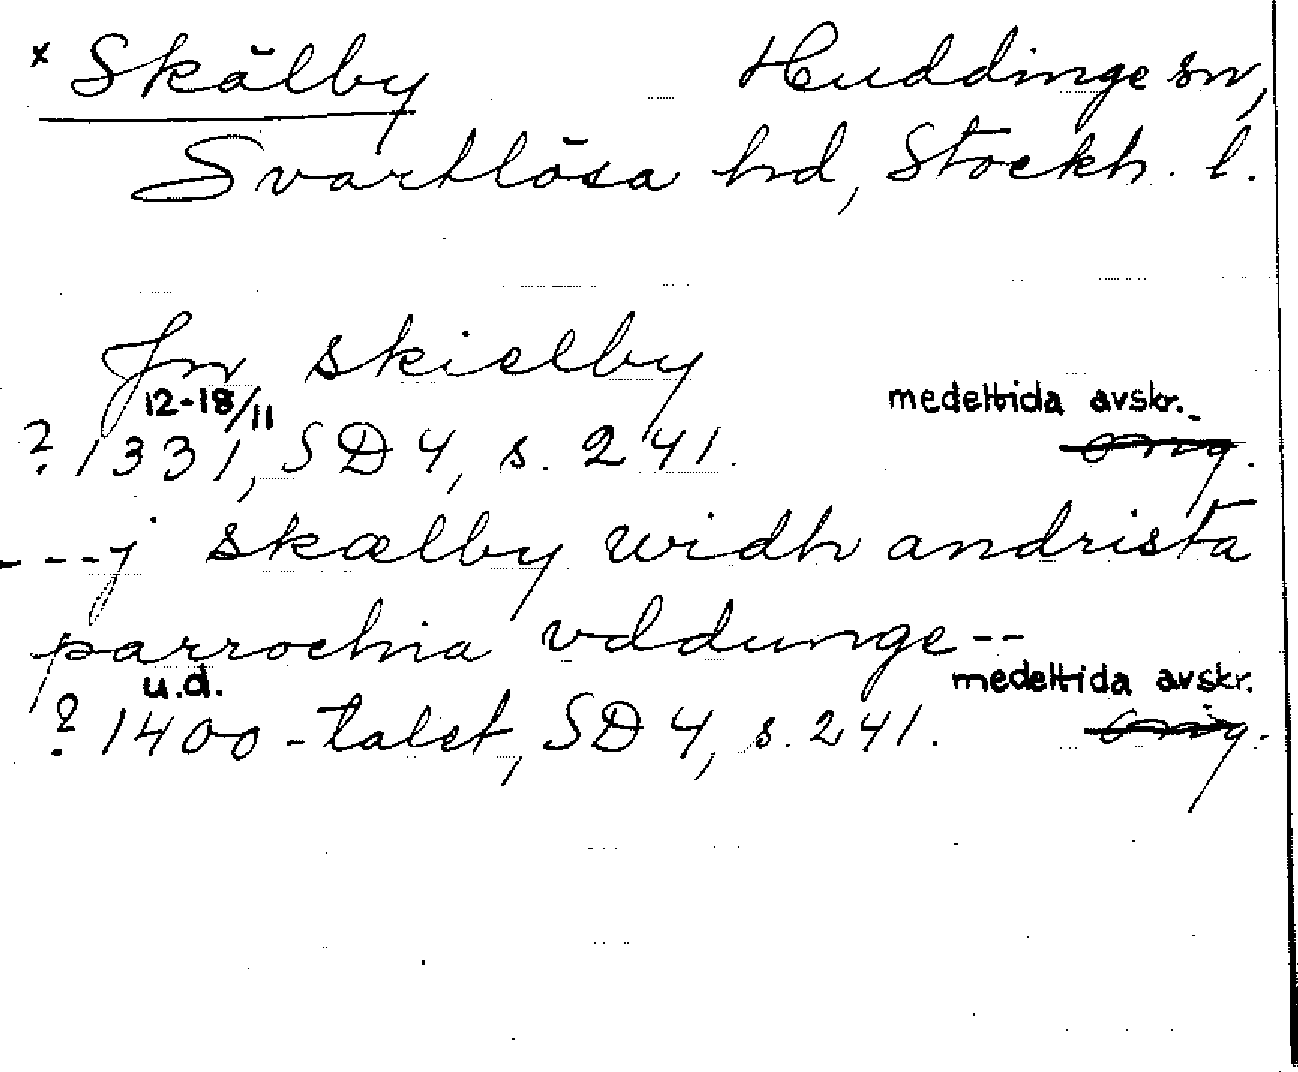 x Skälby Huddinge sn,
Svartlösa hd, Stockh. l.
Jnr skielby
12-18/11 medeltida avskr.
? 1331, SD 4, s. 241. orig.
---j skælby widh andrista
parrochia vddunge--
u.d. medeltida avskr.
? 1400-talet, SD 4, s. 241. orig.